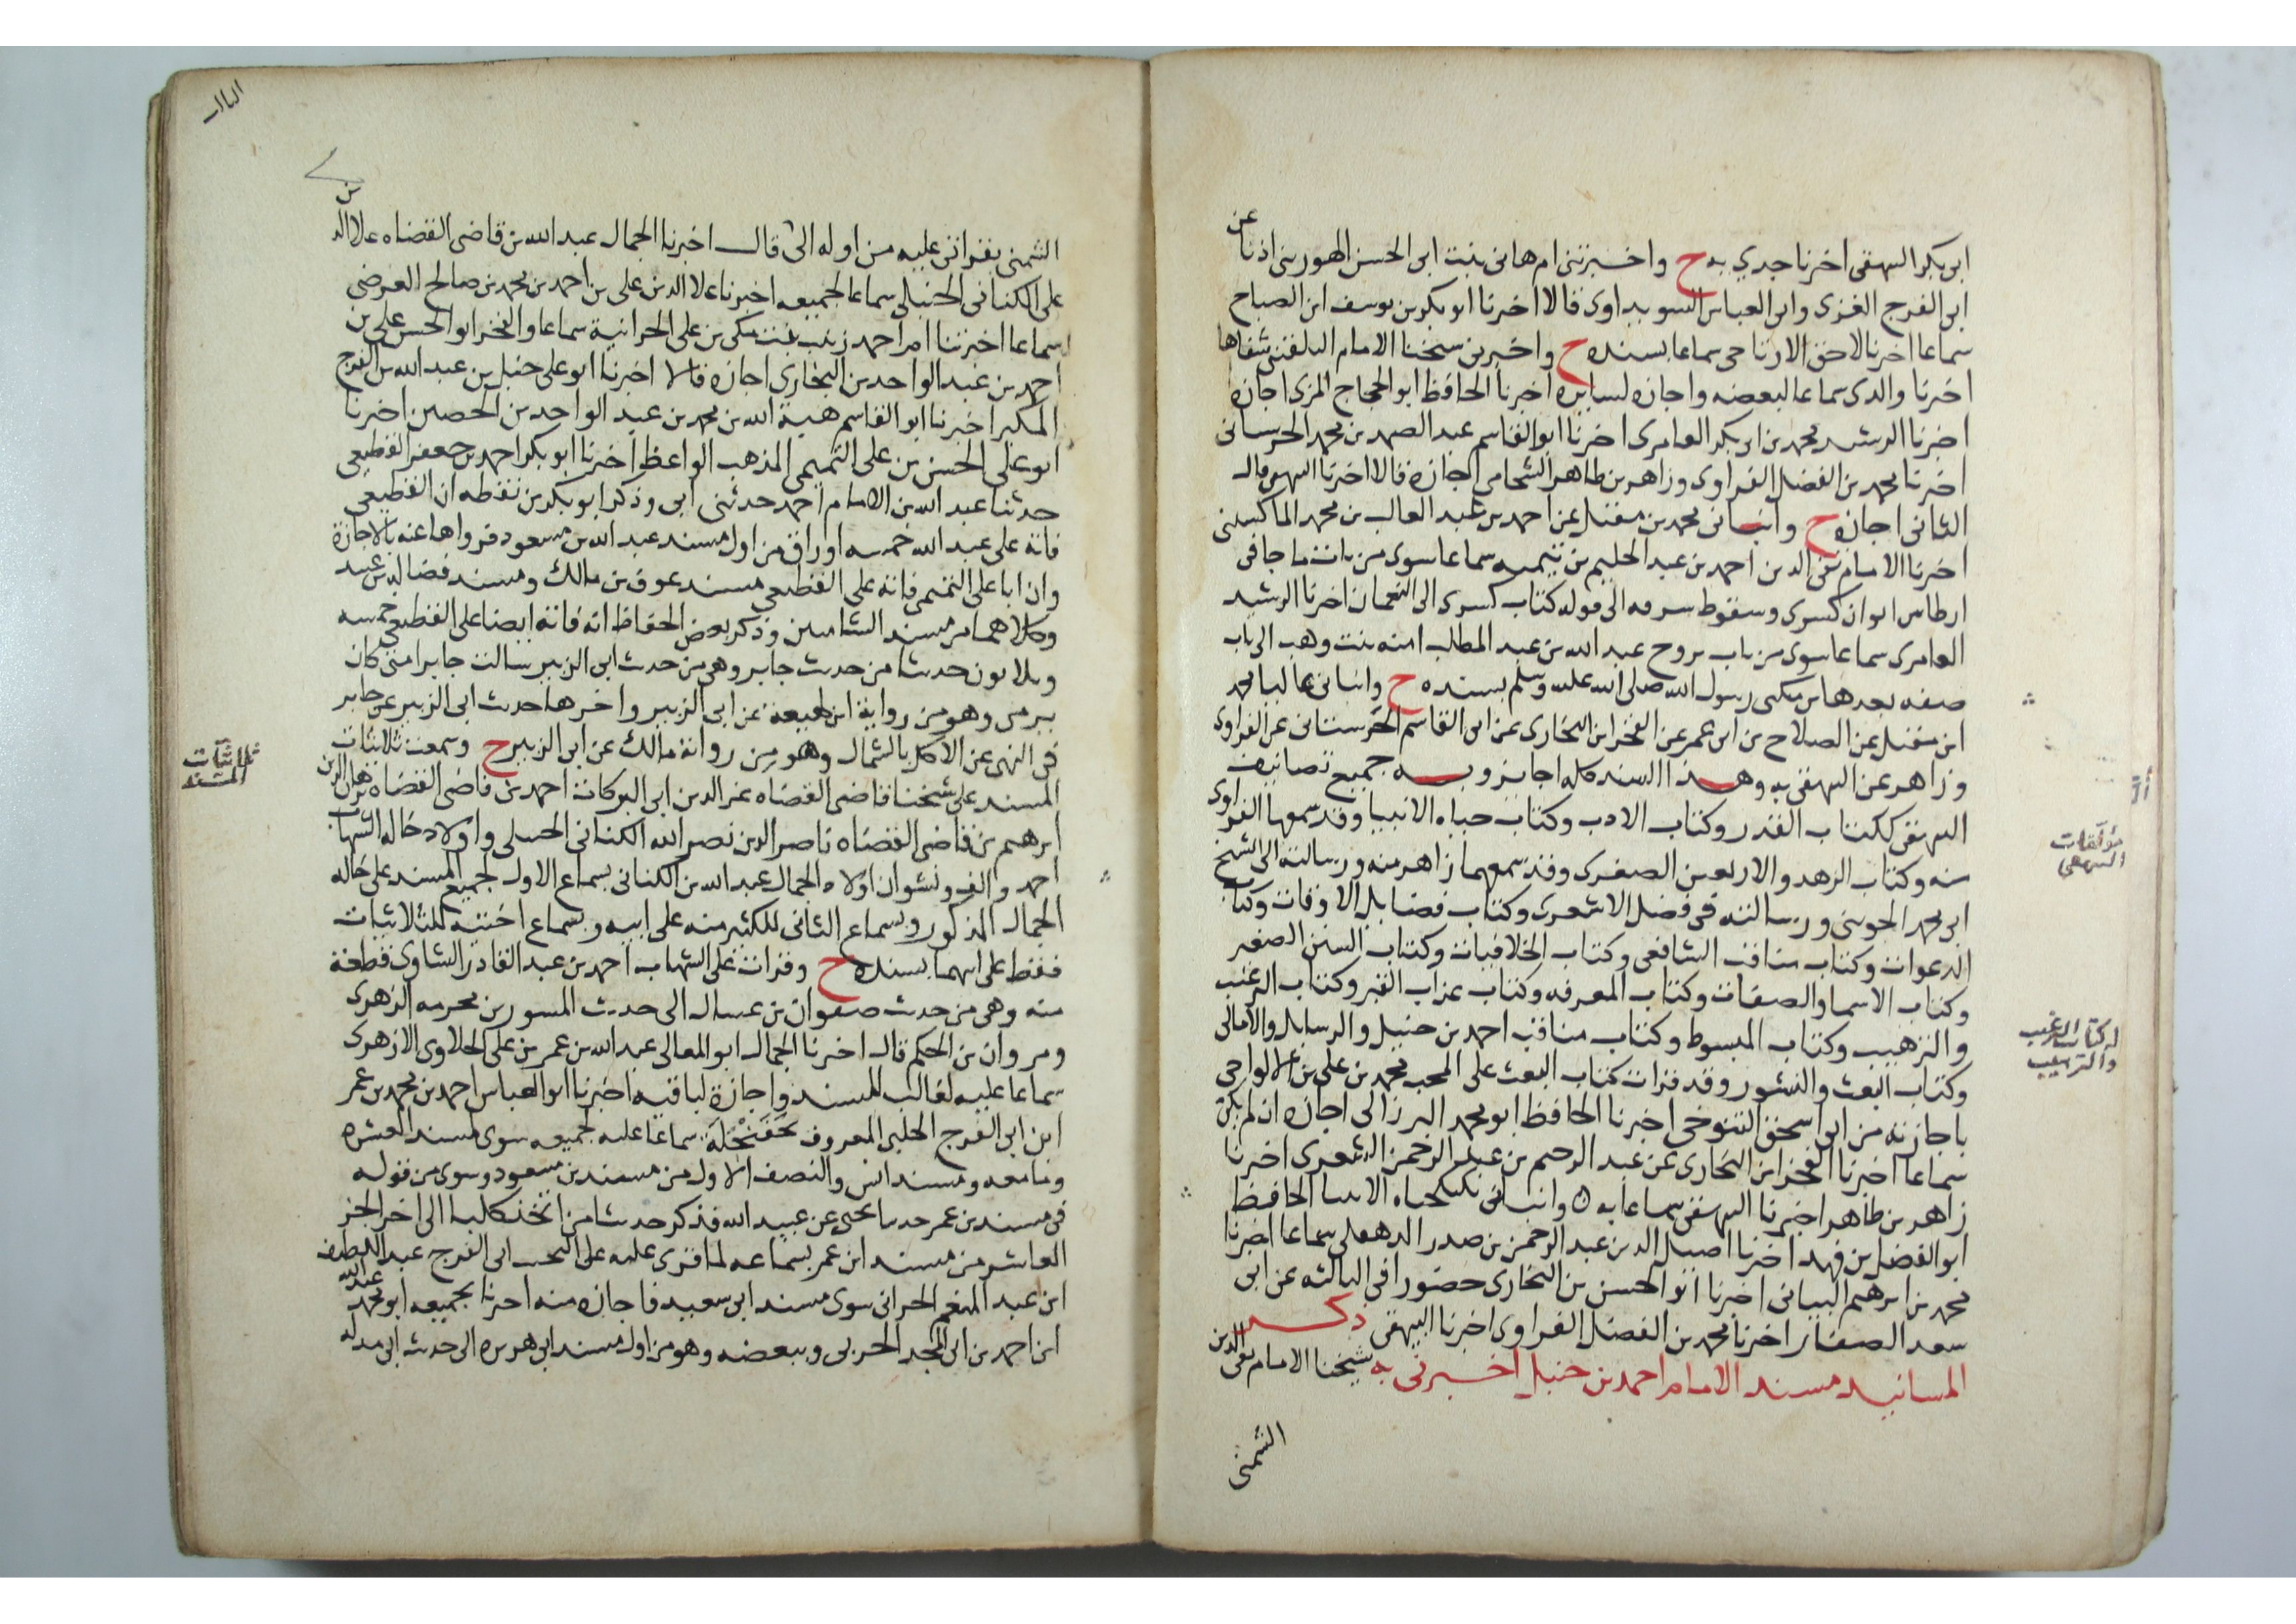 عن
ابى بكر البيهقى اخبرنا جدي به ح واخبرتنى ام هانى بنت ابى الحسن الهورينى اذنا
ابى الفرج الغزى وابى العباس السويداوى قالا اخبرنا ابو بكر بن يوسف ابن الصباح
سماعا اخبرنا لاحق الارتاحى سماعا بسنده ح واخبرنى شيخنا الامام البلقينى شفاها
اخبرنا والدى سماعا لبعضه واجازه لسايره اخبرنا الحافظ ابو الحجاج المزى اجازه
اخبرنا الرشيد محمد بن ابى بكر العامرى اخبرنا ابو القاسم عبد الصمد بن محمد الحرستانى
اخبرنا محمد بن الفضل الفراوى وزاهر بن طاهر الشحامى اجازة قالا اخبرنا البيهقى قال
الثانى اجازه ح وانبانى محمد بن مقبل عن احمد بن عبد الغالب بن محمد الماكسينى
اخبرنا الامام تقى الدين احمد بن عبد الحليم بن تيميه سماعا سوى من باب ما جا فى
ارتجاس ايوان كسرى وسقوط شرفه الى قوله كتاب كسرى الى النعمان اخبرنا الرشيد
العامرى سماعا سوى من باب تزوج عبد الله بن عبد المطلب امنه بنت وهب الى باب
صفه بعدها رسول الله صلى الله عليه وسلم بسنده ح وانبانى عاليا محمد
ابن مقبل عن الصلاح بن ابى عمر عن الفخر ابن البخارى عن ابى القاسم الحرستانى عن الفراوى
وزاهر عن البيهقى به وهذا السند كله اجايز وبه جميع تصانيف
البيهقى ككتاب القدر وكتاب الادب وكتاب حياه الانبيا وقد سمعها الفراوى
منه وكتاب الزهد والاربعين الصغرى وقد سمعهما زاهر منه ورسالته الى الشيخ
ابى محمد الجوينى ورسالته فى فضل الاشعرى وكتاب فضايل الاوقات وكتاب
الدعوات وكتاب مناقب الشافعى وكتاب الخلافيات وكتاب السنن الصغير
وكتاب الاسما والصفات وكتاب المعرفه وكتاب عذاب القبر وكتاب الترغيب
والترهيب وكتاب المبسوط وكتاب مناقب احمد بن حنبل والرسايل والامالى
وكتاب البعث والنشور وقد قرات كتاب البعث على المحب محمد بن على بن الالواحى
باجازته من ابى اسحق التنوخى اخبرنا الحافظ ابو محمد البرزالى اجازه ان لم يكن
سماعا اخبرنا الفخر ابن البخارى عن عبد الرحيم بن عبد الرحمن الشعرى اخبرنا
زاهر بن طاهر اخبرنا البيهقى سماعا به وانبانى بكتاب حياه الانبيا الحافظ
ابو الفضل بن فهد اخبرنا اصيل الدين عبد الرحمن بن صدر الدهقلى سماعا اخبرنا
محمد بن ابرهيم البيانى اخبرنا ابو الحسن بن البخارى حضورا فى الثالثه عن ابى
سعد الصفار اخبرنا محمد بن الفضل الفراوى اخبرنا البيهقى ذكر
المسانيد مسند الامام احمد بن حنبل اخبرنى به شيخنا الامام تقى الدين
الشمنى
مؤلفات
البيهقى
كتاب الترغيب
والترهيب
الشمنى بقراتى عليه من اوله الى قال اخبرنا الجمال عبد الله بن قاضى القضاه علا الد
ين
على الكنانى الحنبلى سماعا لجميعه اخبرنا علا الدين على بن احمد بن محمد بن صالح العرضى
سماعا اخبرتنا ام احمد زينب بنت مكى بن على الحرانية سماعا والفخر ابو الحسن على بن
احمد بن عبد الواحد بن البخارى اجازه قالا اخبرنا ابو على حنبل بن عبد الله بن الفرج
المكبر اخبرنا ابو القاسم هبة الله بن محمد بن عبد الواحد بن الحصين اخبرنا
ابو على الحسن بن على التميمى المذهب الواعظ اخبرنا ابو بكر احمد بن جعفر القطيعى
حدثنا عبد الله بن الامام احمد حدثنى ابى وذكر ابو بكر بن نقطه ان القطيعى
فاته على عبد الله خمسه اوراق من اول مسند عبد الله بن مسعود فرواها عنه بالاجازة
وان ابا على التميمى فاته على القطيعى مسند عوف بن مالك ومسند فضاله بن عبيد
وكلاهما من مسند الشاميين وذكر بعض الحفاظ انه فاته ايضا على القطيعى خمسه
وثلاثون حديثا من حديث جابر وهى من حديث ابى الزبير سالت جابرا متى كان
يرمى وهو من رواية ابن لهيعة عن ابى الزبير واخرها حديث ابى الزبير عن جابر
فى النهى عن الاكل بالشمال وهو من رواية مالك عن ابى الزبير ح وسمعت ثلاثيات
المسند على شيخنا قاضى القضاه عز الدين ابى البركات احمد بن قاضى القضاه برهان الدين
ابرهيم بن قاضى القضاه ناصر الدين نصر الله الكنانى الحنبلى واولاد خاله الشهاب
احمد والف ونشوان اولاد الجمال عبد الله بن الكنانى بسماع الاول لجميع المسند على خاله
الجمال المذكور وبسماع الثانى للكثير منه على ابيه وبسماع اخته للثلاثيات
فقط على ابيهما بسنده ح وقرات على الشهاب احمد بن عبد القادر الشاوى قطعة
منه وهى من حديث صفوان بن عسال الى حديث المسور بن مخرمه الزهرى
ومروان بن الحكم قال اخبرنا الجمال ابو المعالى عبد الله بن عمر بن على الحلاوى الازهرى
سماعا عليه لغالب المسند واجازة لباقيه اخبرنا ابو العباس احمد بن محمد بن عمر
ابن ابى الفرج الحلبى المعروف سماعا عليه لجميعه سوى مسند العشره
وما معه ومسند انس والنصف الاول من مسند بن مسعود وسوى من قوله
فى مسند بن عمر حدثنا يحيى عن عبيد الله فذكر حديثا من اتخذ كلبا الى اخر الجز
العاشر من مسند ابن عمر بسماعه لما قرى عليه على النجيب ابى الفرج عبد اللطيف
ابن عبد المنعم الحرانى سوى مسند ابى سعيد فاجازه منه اخبرنا بجميعه ابو محمد عبد الله
ابن احمد بن ابى المجد الحربى وببعضه وهو من اول مسند ابى هريره الى حديث ابى
ثلاثيات
المسند